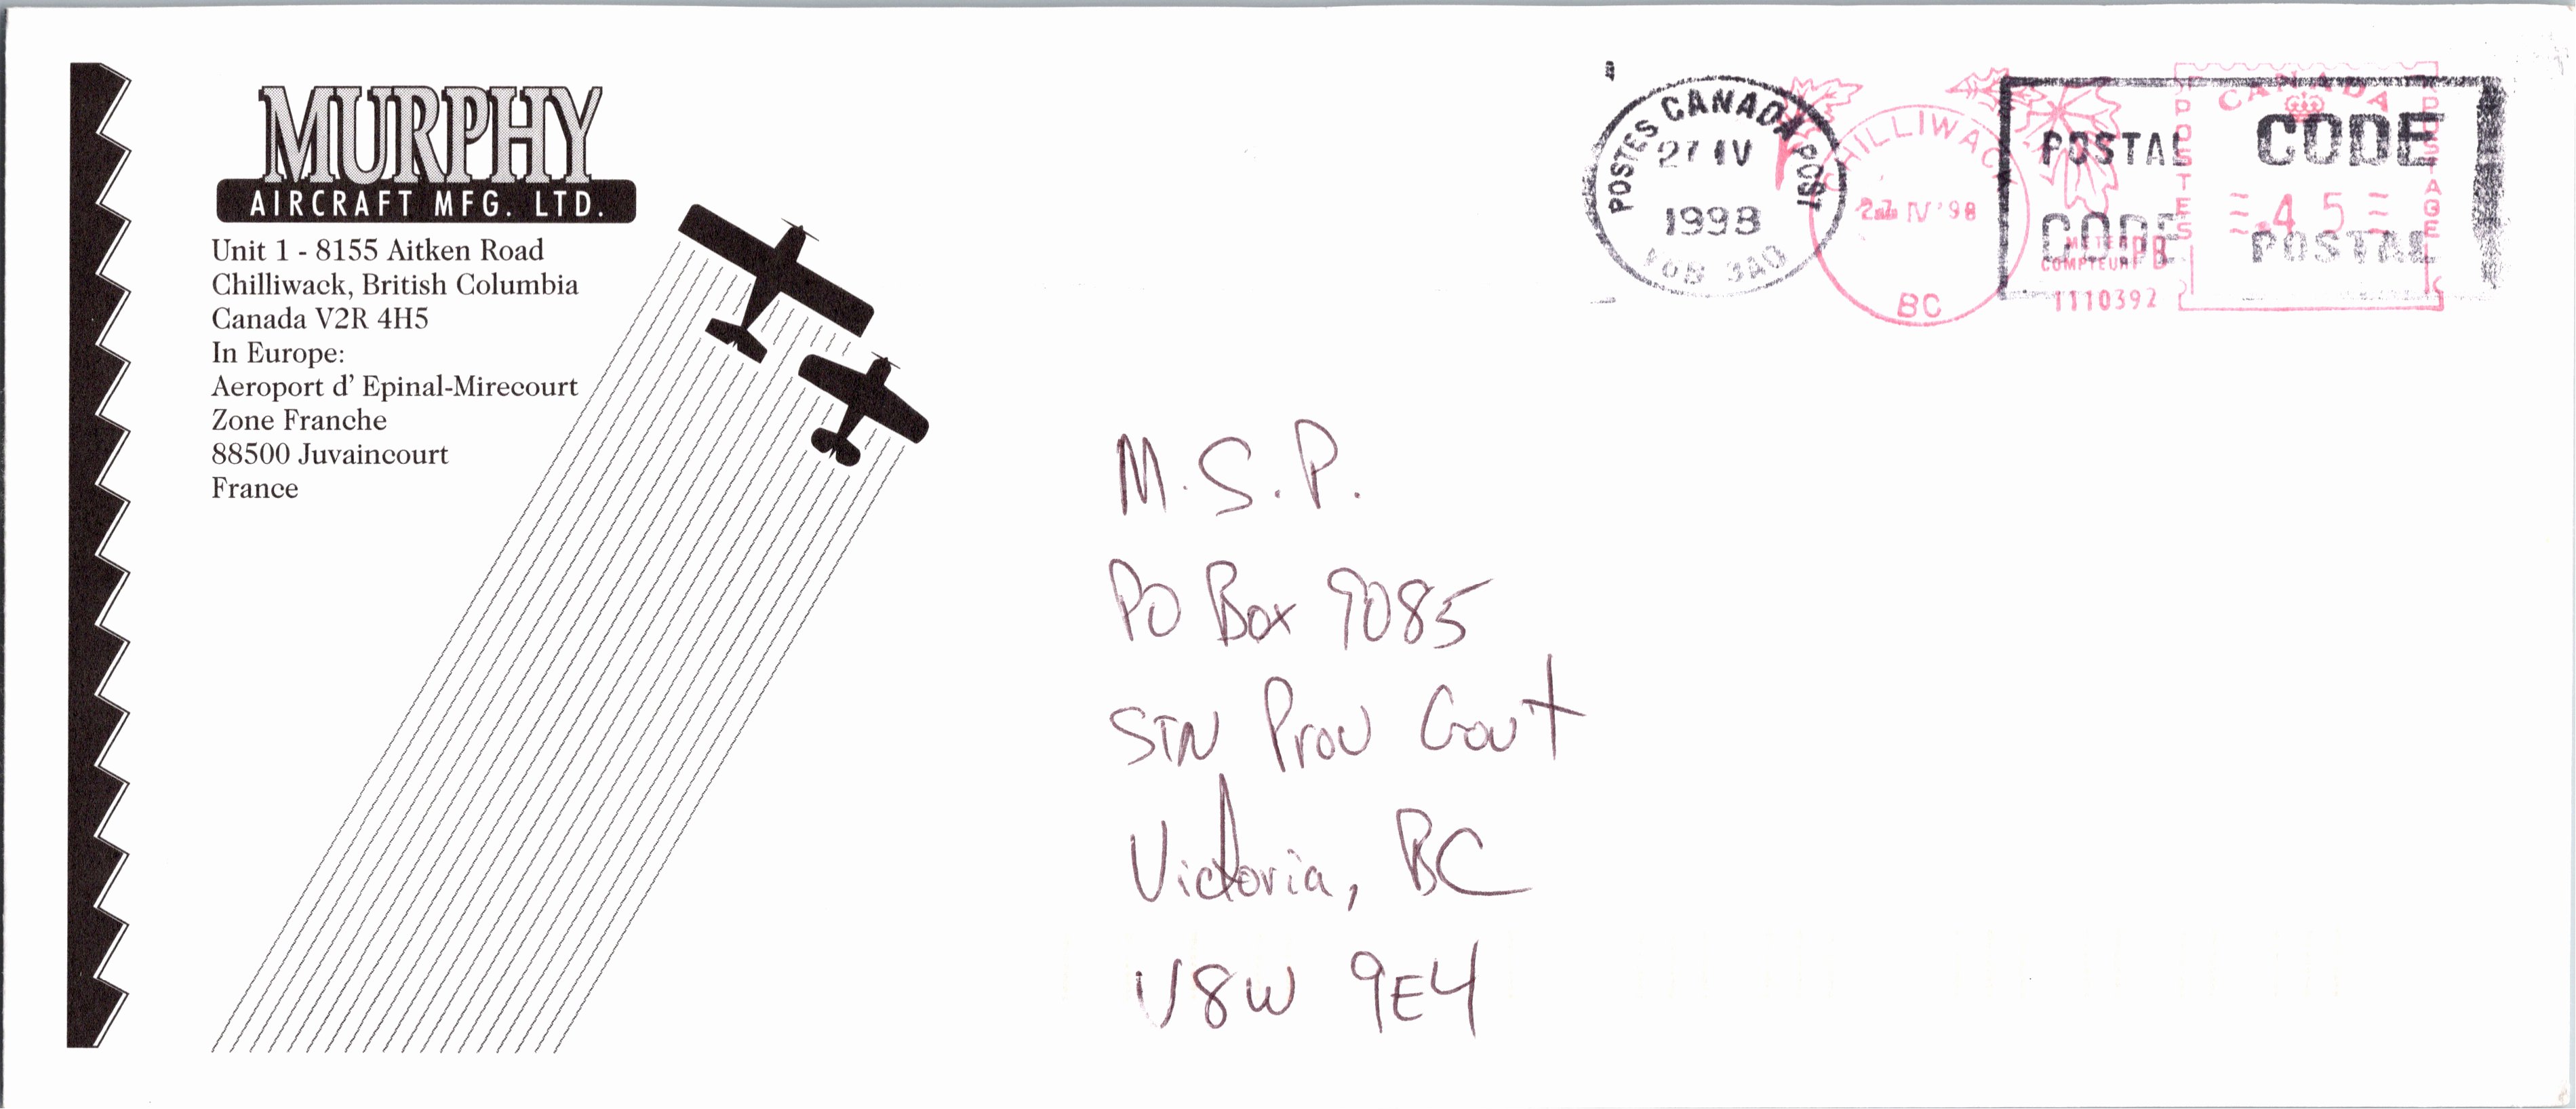 MURPHY
AIRCRAFT MFG. LTD.
Unit 1 - 8155 Aitken Road
Chilliwack, British Columbia
Canada V2R 4H5
In Europe:
Aeroport d' Epinal-Mirecourt
Zone Franche
88500 Juvaincourt
France
POSTES CANADA POST
27 IV
1998
CHILLIWACK
IV '98
BC
POSTAL CODE
CODE POSTAL
METER PB
COMPTEUR
1110392
POSTES
CANADA
.45
POSTAGE
M.S.P.
PO Box 9085
STN Prov Gov't
Victoria, BC
V8W 9E4